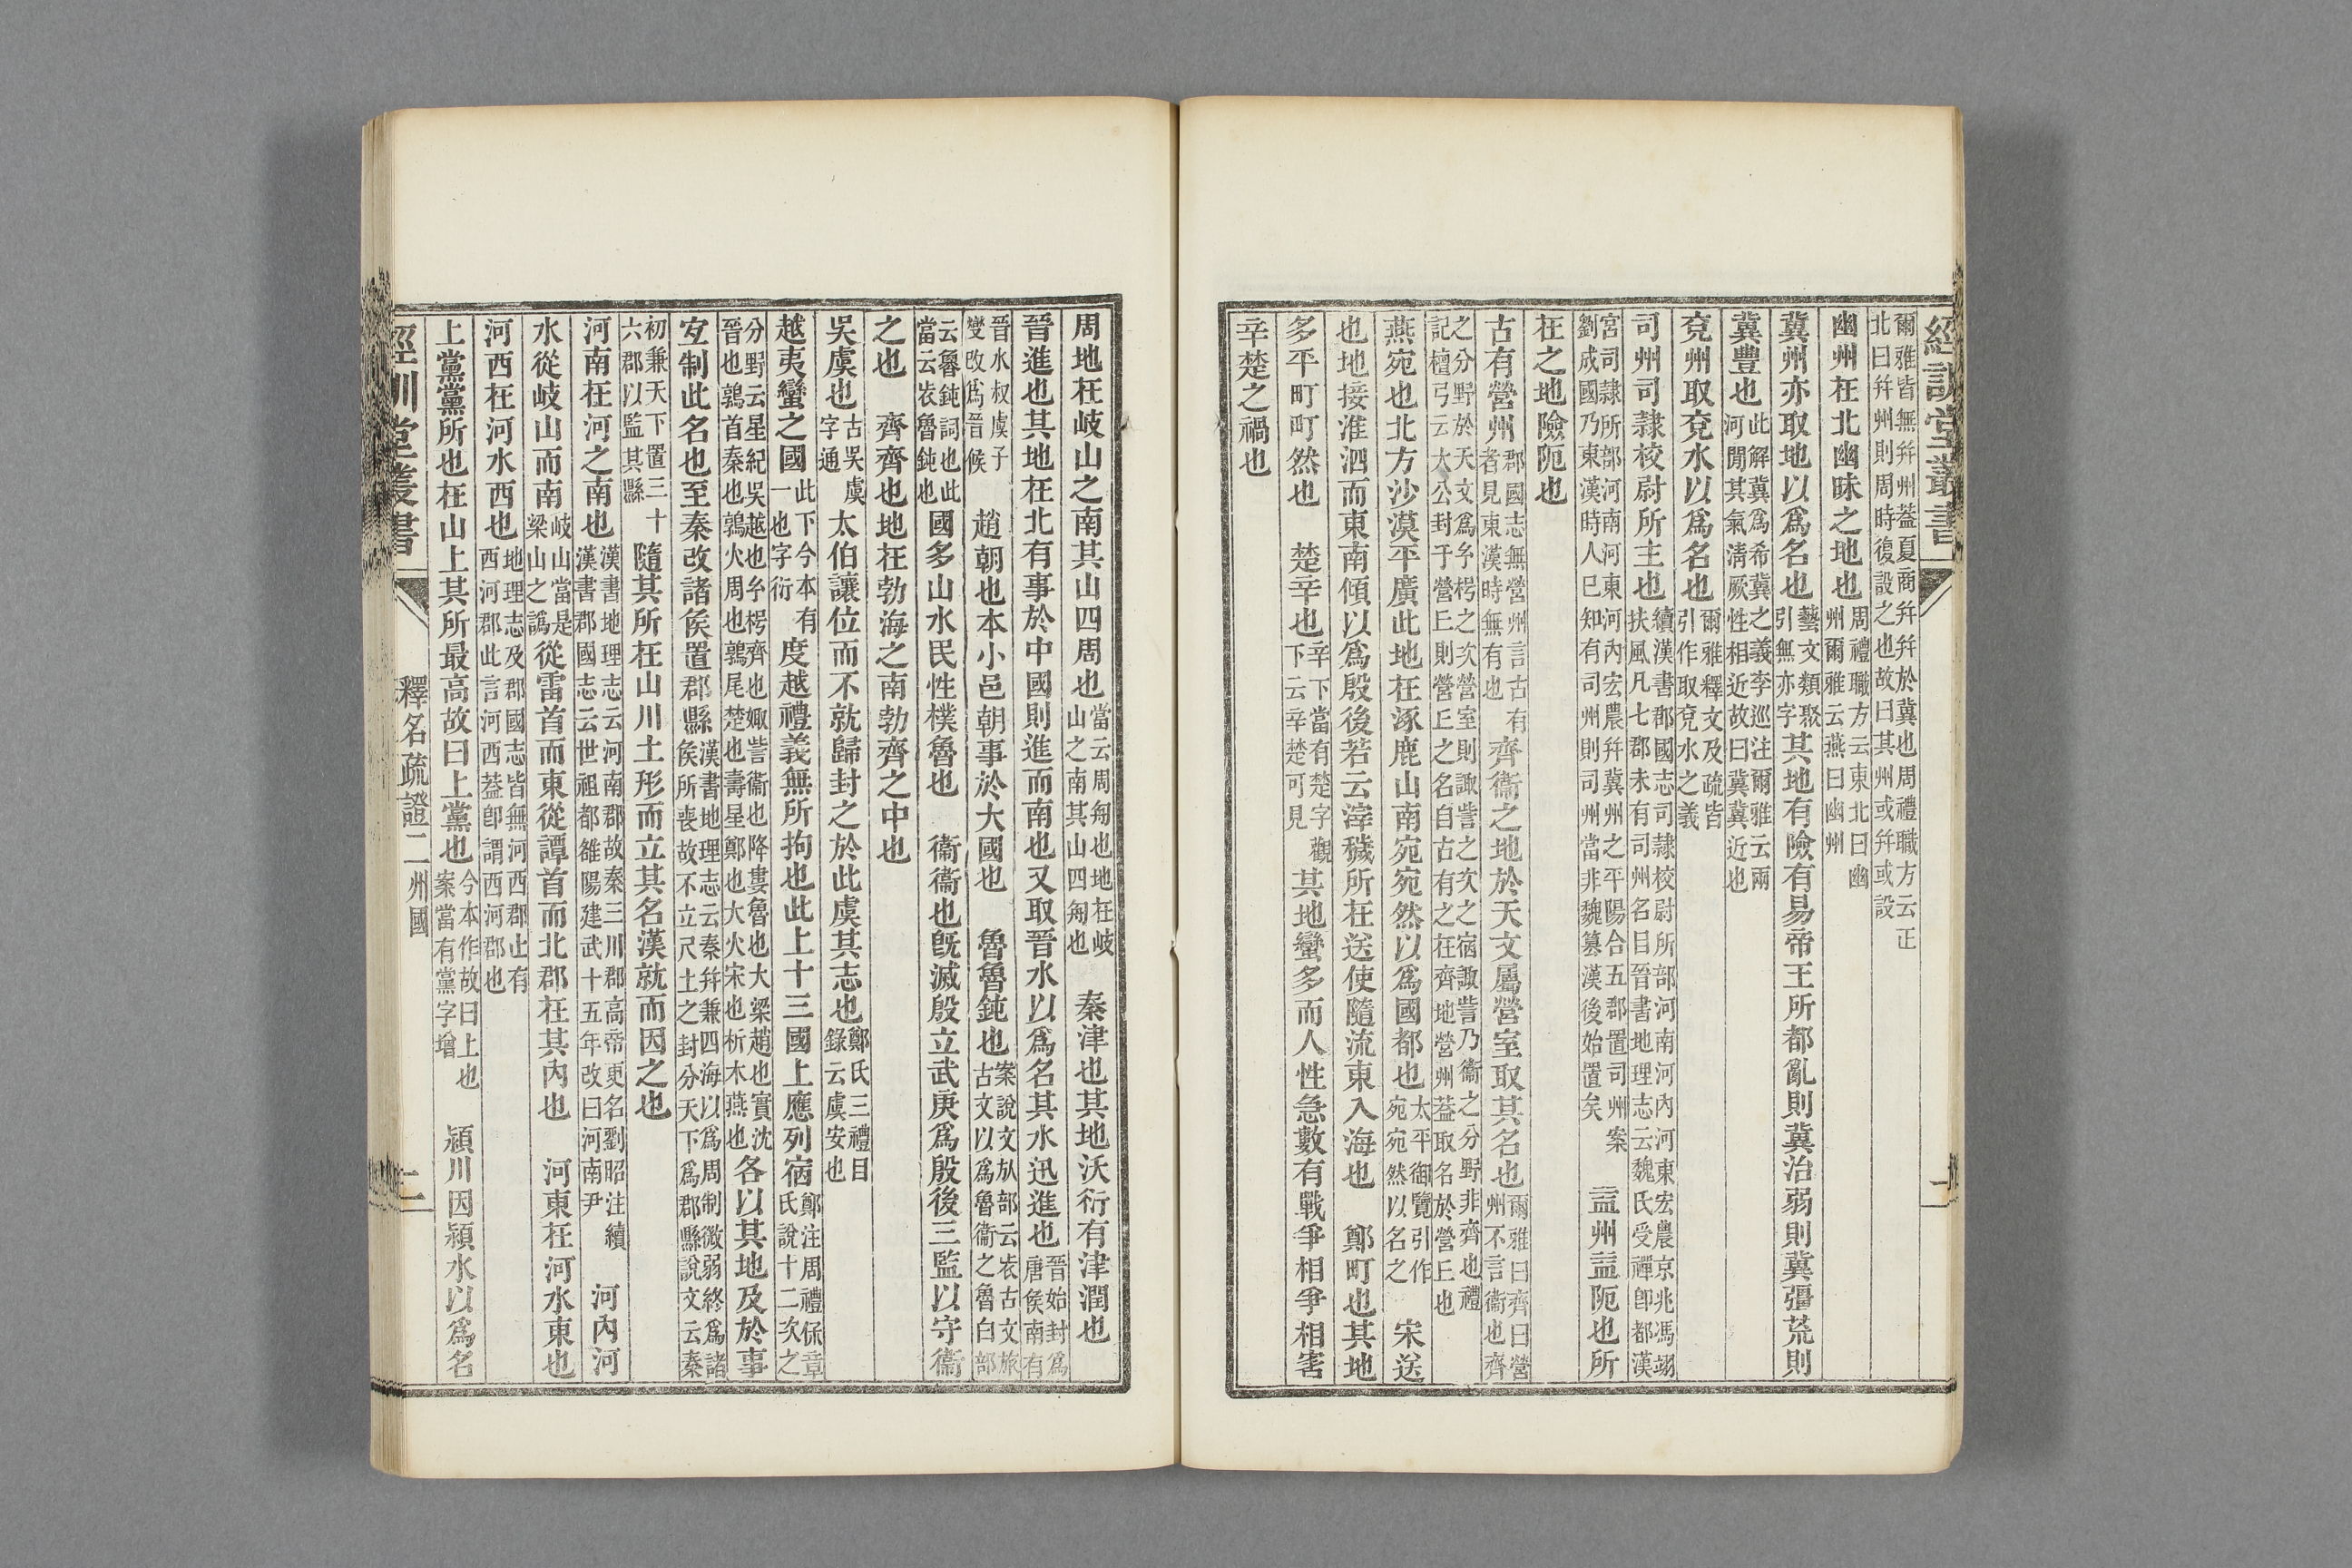 經訓堂叢書
爾雅皆無幷州葢夏商幷幷於冀也周禮職方云正
北曰幷州則周時復設之也故曰其州或幷或設
幽州在北幽昧之地也周禮職方云東北曰幽
州爾雅云燕曰幽州
冀州亦取地以爲名也藝文類聚
引無亦字其地有險有易帝王所都亂則冀治弱則冀彊荒則
冀豐也此解冀爲希冀之義李巡注爾雅云兩
河閒其氣淸厥性相近故曰冀冀近也
兗州取兗水以爲名也爾雅釋文及疏皆
引作取兗水之義
司州司隷校尉所主也續漢書郡國志司隷校尉所部河南河內河東宏農京兆馮翊
扶風凡七郡未有司州名目晉書地理志云魏氏受禪卽都漢
宮司隷所部河南河東河內宏農幷冀州之平陽合五郡置司州案
劉成國乃東漢時人已知有司州則司州當非魏篡漢後始置矣
益州益阨也所
在之地險阨也
古有營州郡國志無營州言古有
者見東漢時無有也齊衞之地於天文屬營室取其名也爾雅曰齊曰營
州不言衞也齊
之分野於天文爲㠭枵之次營室則諏訾之次之宿諏訾乃衞之分野非齊也禮
記檀弓云太公封于營丘則營丘之名自古有之在齊地營州葢取名於營丘也
燕宛也北方沙漠平廣此地在涿鹿山南宛宛然以爲國都也太平御覽引作
宛宛然以名之　宋送
也地接淮泗而東南傾以爲殷後若云滓穢所在送使隨流東入海也　鄭町也其地
多平町町然也　楚辛也辛下當有楚字觀
下云辛楚可見其地蠻多而人性急數有戰爭相爭相害
辛楚之禍也
周地在岐山之南其山四周也當云周匊也地在岐
山之南其山四匊也　秦津也其地沃衍有津潤也
晉進也其地在北有事於中國則進而南也又取晉水以爲名其水迅進也晉始封爲
唐侯南有
晉水叔虞子
燮改爲晉候　趙朝也本小邑朝事於大國也　魯魯鈍也案說文㫃部云㕀古文旅
古文以爲魯衞之魯白部
云魯鈍詞也此
當云㕀魯鈍也國多山水民性樸魯也　衞衞也旣滅殷立武庚爲殷後三監以守衞
之也　齊齊也地在勃海之南勃齊之中也
吳虞也古吳虞
字通太伯讓位而不就歸封之於此虞其志也鄭氏三禮目
錄云虞安也
越夷蠻之國此下今本有
一也字衍度越禮義無所拘也此上十三國上應列宿鄭注周禮保章
氏說十二次之
分野云星紀吳越也㠭枵齊也娵訾衞也降婁魯也大梁趙也實沈
晉也鶉首秦也鶉火周也鶉尾楚也壽星鄭也大火宋也析木燕也各以其地及於事
宐制此名也至秦改諸侯置郡縣漢書地理志云秦幷兼四海以爲周制微弱終爲諸
侯所喪故不立尺土之封分天下爲郡縣說文云秦
初兼天下置三十
六郡以監其縣　隨其所在山川土形而立其名漢就而因之也
河南在河之南也漢書地理志云河南郡故秦三川郡高帝更名劉昭注續
漢書郡國志云世祖都雒陽建武十五年改曰河南尹　河內河
水從岐山而南岐山當是
梁山之譌從雷首而東從譚首而北郡在其內也　河東在河水東也
河西在河水西也地理志及郡國志皆無河西郡止有
西河郡此言河西葢卽謂西河郡也
上黨黨所也在山上其所最高故曰上黨也今本作故曰上也
案當有黨字增　潁川因潁水以爲名
經訓堂叢書　釋名疏證二　州國　二